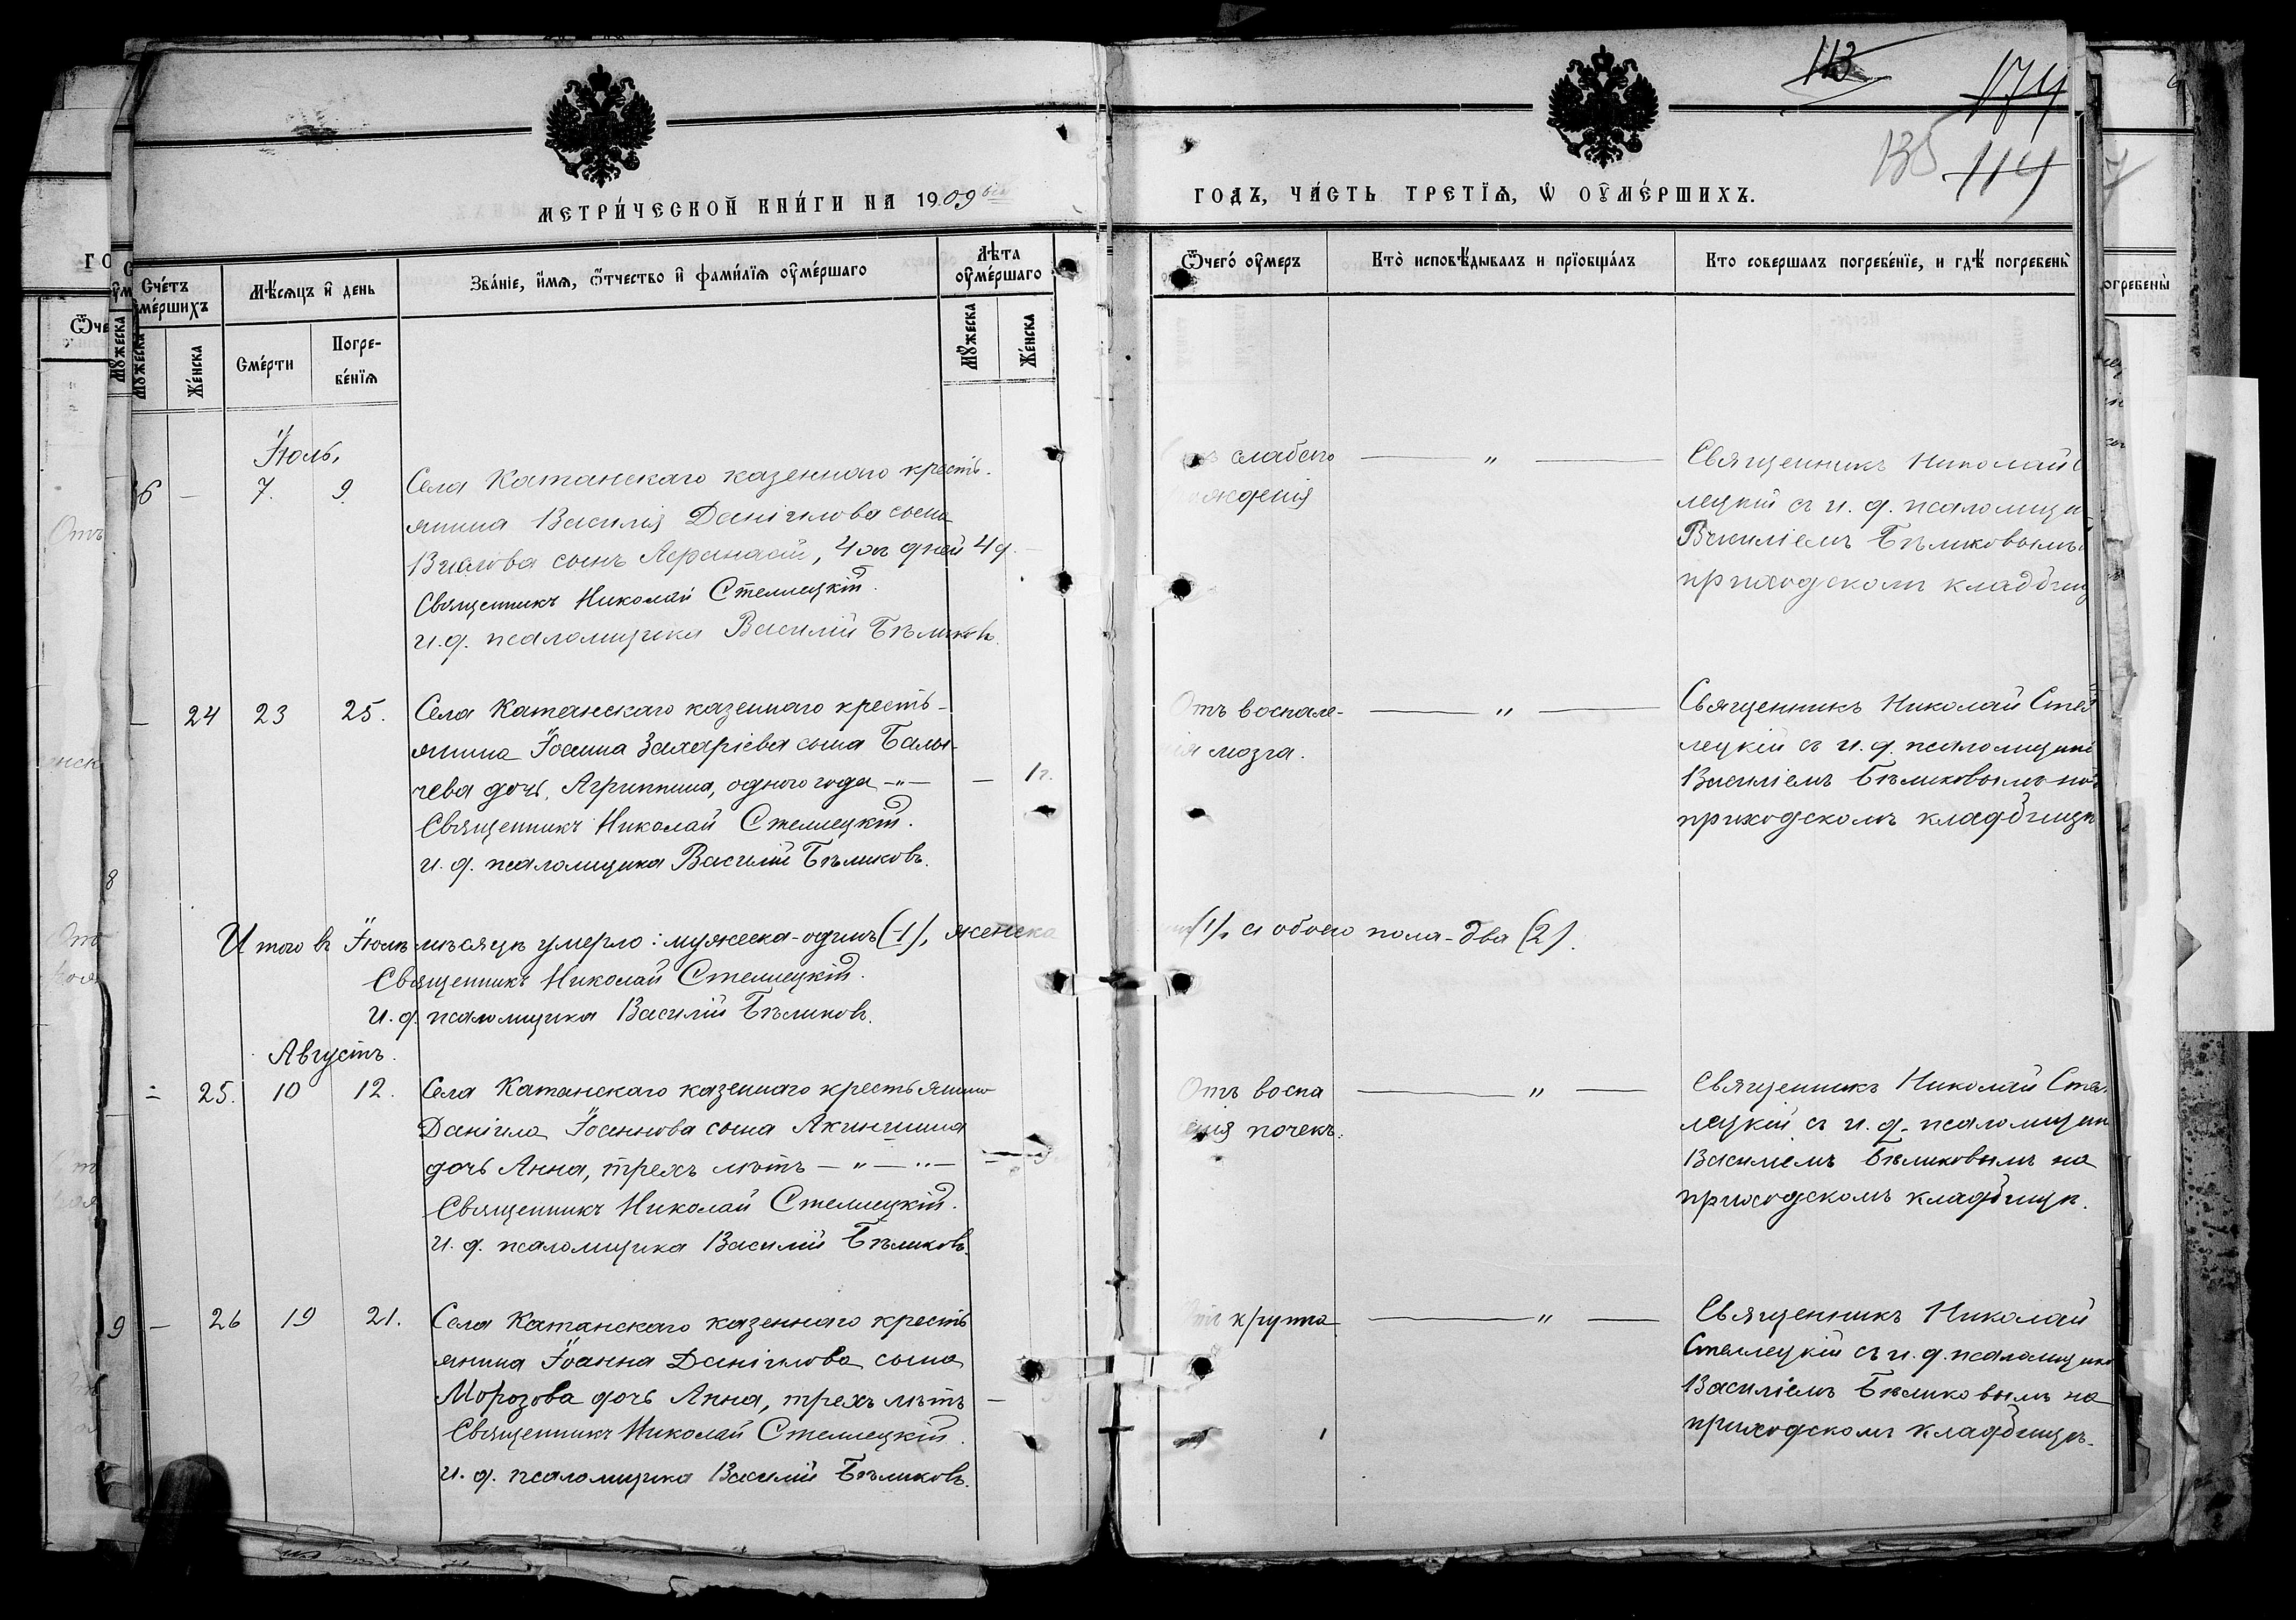 113
174
135
114
МЕТРИ́ЧЕСКОЙ КНИ́ГИ НА 1909
ГОДЪ, ЧА́СТЬ ТРЕТЇЯ, Ѡ ОУМЕ́РШИХЪ.
Сче́тъ
ме́ршихъ
Мꙋ́жеска
Же́нска
Мѣ́сяцъ и день
Сме́рти
Погре-
бе́нїя
Зва́нїе, и́мя, ѻ́тчество и фами́лїя оуме́ршаго
Лѣта
оуме́ршаго
Мꙋ́жеска
Же́нска
Ѿчего́ оумеръ
Кто̀ исповѣ́дывалъ и прїобща́лъ
Кто соверша́лъ погребе́нїе, и гдѣ̀ погребены̀
Іюль.
6 — 7. 9. Села Катанскаго казеннаго кресть-
янина Василія Даніилова сына
сынъ Аѳанасій, 4хъ дней 4 д. —
Священникъ Николай Стеллецкій.
и. д. псаломщика Василій Бѣликовъ.
слабаго — " —
рожденія
Священникъ Николай
лецкій съ и. д. псаломщи
Василіемъ Бѣликовымъ
приходскомъ кладбищ
— 24 23 25. Села Катанскаго казеннаго кресть-
янина Іоанна Захаріева сына Балы-
чева дочь Агриппина, одного года —"— — 1 г.
Священникъ Николай Стеллецкій.
и. д. псаломщика Василій Бѣликовъ.
Отъ воспале- — " —
нія мозга.
Священникъ Николай Стел
лецкій съ и. д. псаломщик
Василіемъ Бѣликовымъ на
приходскомъ кладбищѣ
Итого въ Іюлѣ мѣсяцѣ умерло: мужеска-одинъ (1), женска
(1), а обоего пола-два (2).
Священникъ Николай Стеллецкій.
И. д. псаломщика Василій Бѣликовъ.
Августъ.
— 25. 10 12. Села Катанскаго казеннаго крестьянина
Даніила Іоаннова сына Акиншина
дочь Анна, трехъ лѣтъ — " — " —
Священникъ Николай Стеллецкій.
И. д. псаломщика Василій Бѣликовъ.
Отъ воспа — " —
енія почекъ.
Священникъ Николай Стел
лецкій съ и. д. псаломщик
Василіемъ Бѣликовымъ на
приходскомъ кладбищѣ.
— 26 19 21. Села Катанскаго казеннаго кресть
янина Іоанна Даніилова сына
Морозова дочь Анна, трехъ лѣтъ —
Священникъ Николай Стеллецкій.
и. д. псаломщика Василій Бѣликовъ.
крупа — " —
Священникъ Николай
Стеллецкій съ и. д. псаломщика
Василіемъ Бѣликовымъ на
приходскомъ кладбищѣ.